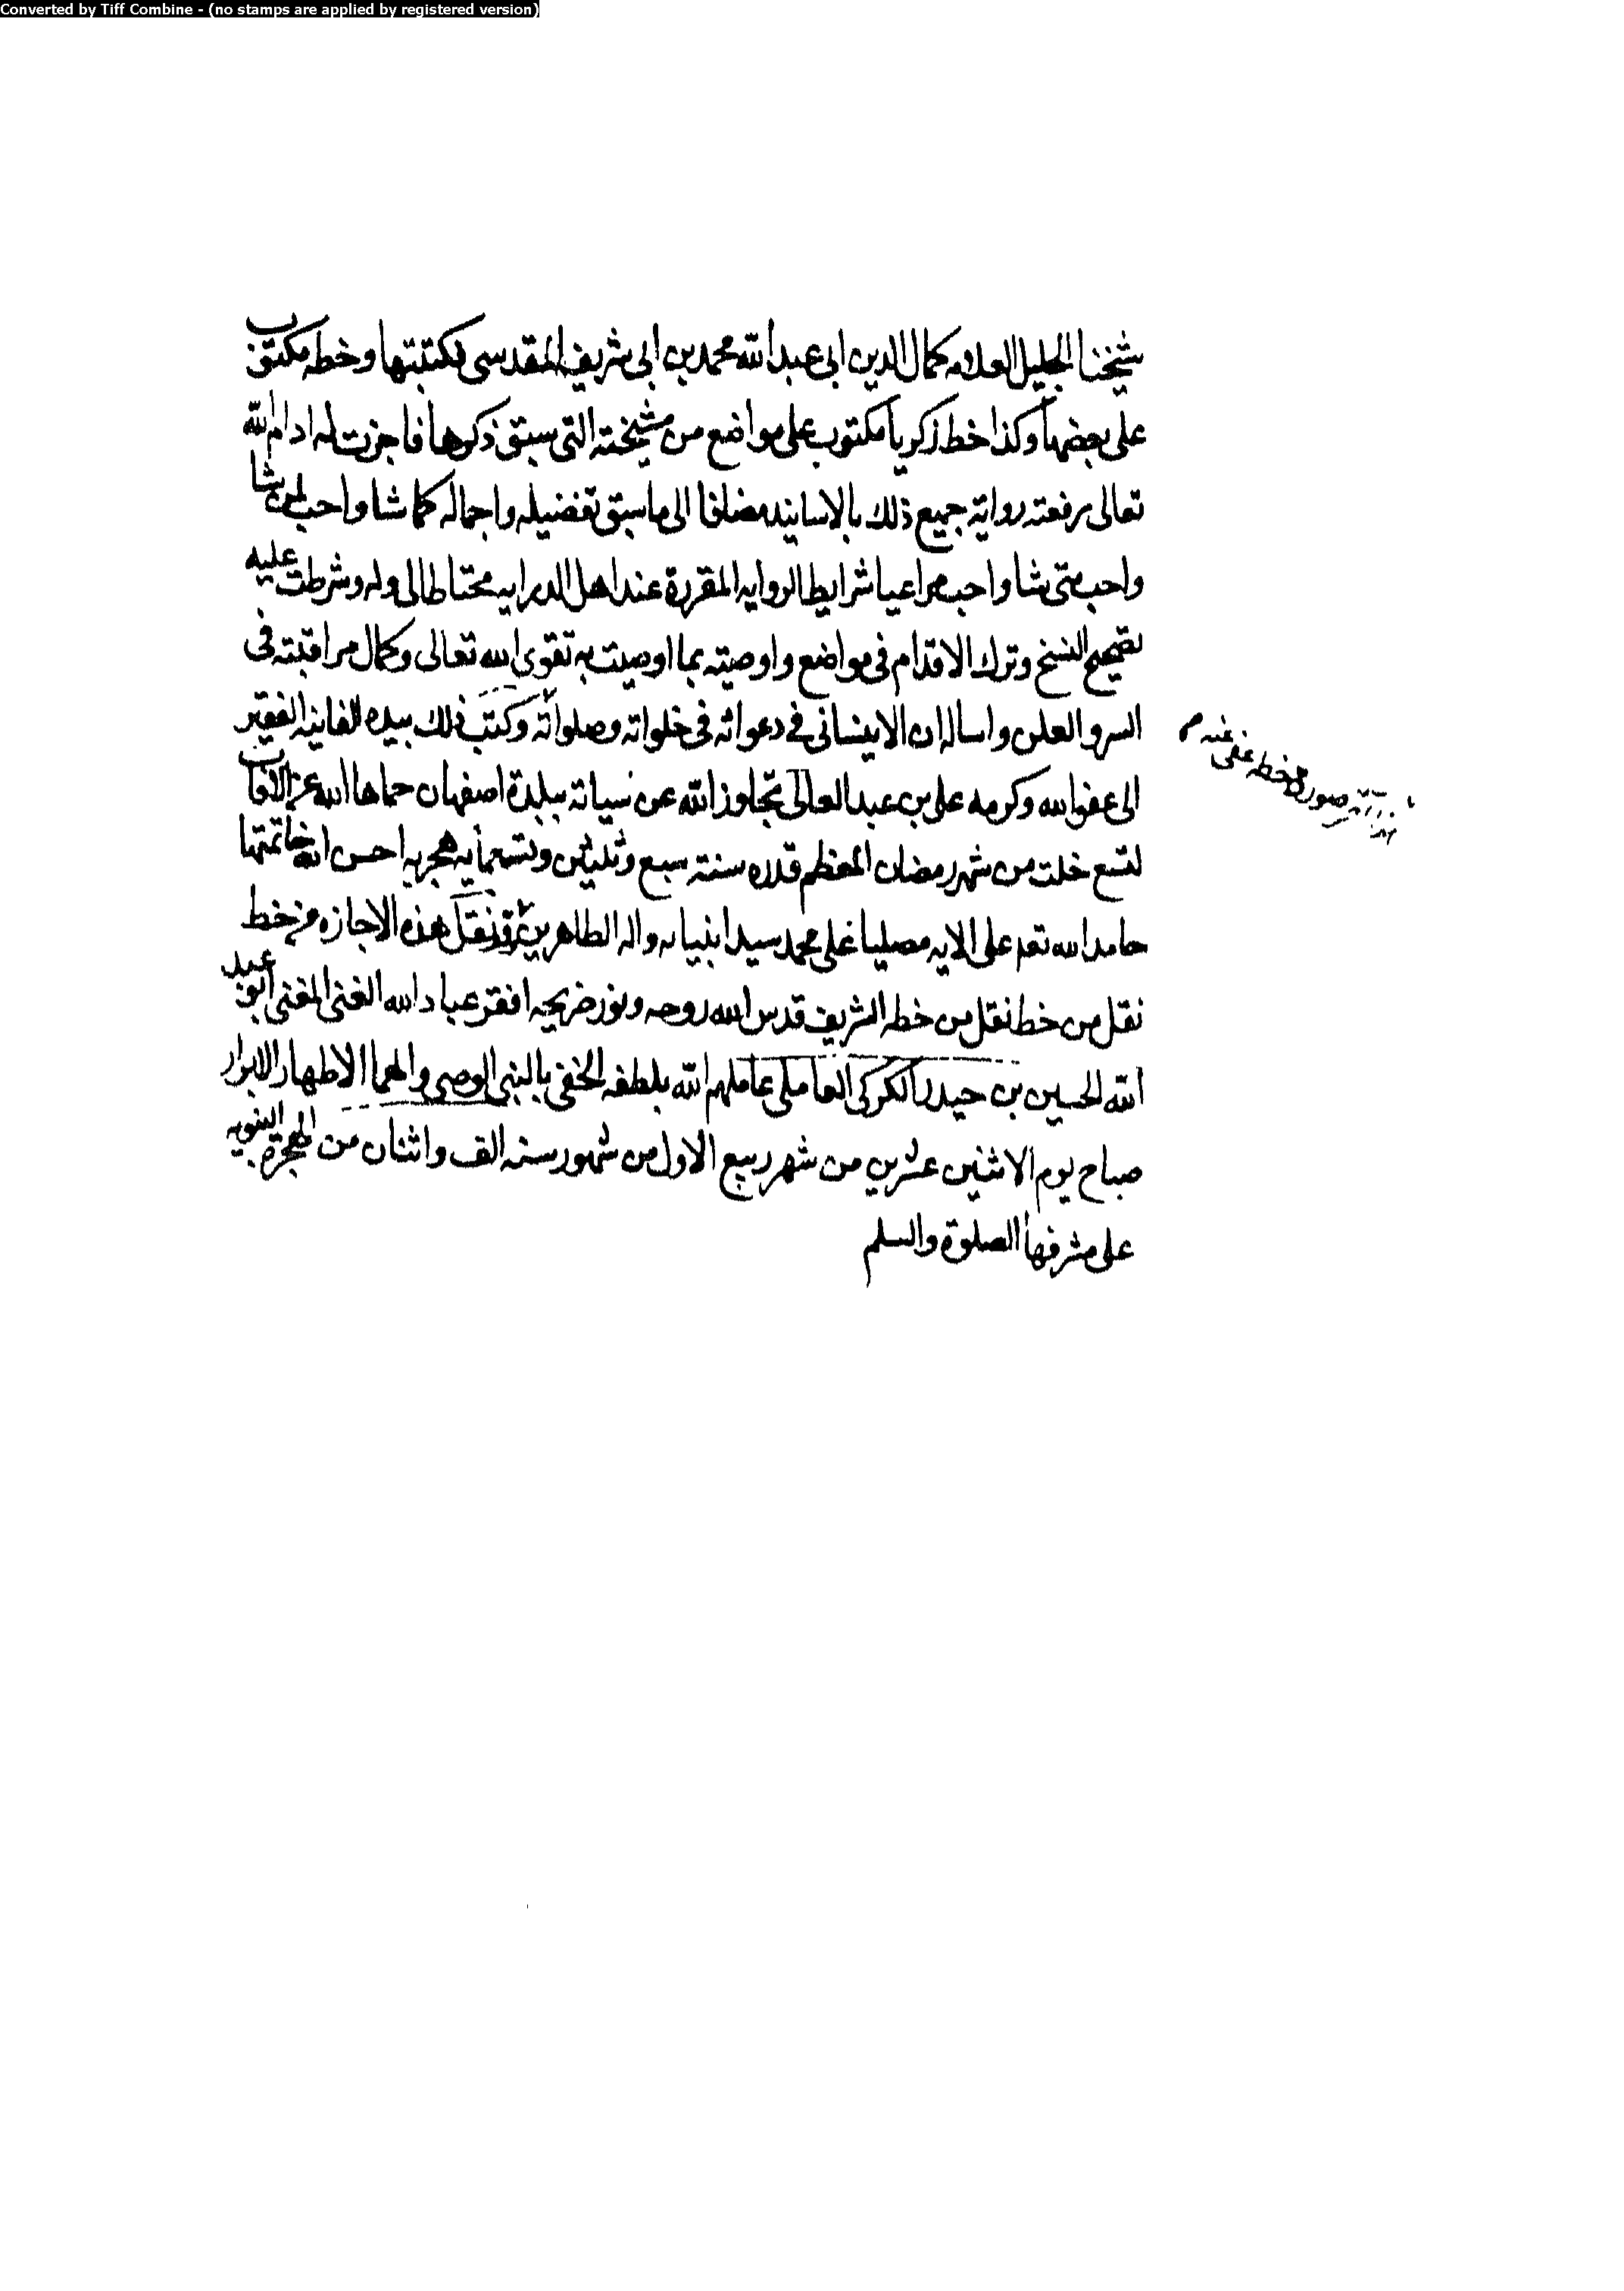 Converted by Tiff Combine - (no stamps are applied by registered version)
شيخنا الجليل العلامه كمال الدين ابى عبد الله محمد بن ابى شريف المقدسى فكتبتها وخطه مكتوب
على بعضها وكذا خط زكريا مكتوب على مواضع من مشيخته التى سبق ذكرها فاجزت له ادام الله
تعالى رفعته رواية جميع ذلك بالاسانيد مضافا الى ما سبق تفضيله واجماله كما شا واحب لمن شا
واحب متى شا واحب مراعيا شرايط الروايه المقررة عند اهل الدرايه محتاطا لى وله وشرطت عليه
تصحيح النسخ وترك الاقدام فى مواضع واوصيته بما اوصيت به تقوى الله تعالى وكمال مراقبته فى
السر والعلن واساله ان لا ينسانى فى دعواته فى خلواته وصلواته وكتب ذلك بيده الفانيه الفقير
الى عفو الله وكرمه على بن عبد العالى تجاوز الله عن سياته ببلدة اصفهان حماها الله عن
لتسع خلت من شهر رمضان المعظم قدره سنة سبع وثلثين وتسعمايه هجريه احسن الله خاتمتها
حامدا لله تعم على الايه مصليا على محمد سيد انبيائه واله الطاهرين نقل هذه الاجازه من خط
نقل من خط نقل من خطه الشريف قدس الله روحه ونور ضريحه افقر عباد الله الغنى المغنى ابو عبد
الله الحسين بن حيدر الكركى العاملى عاملهم الله بلطفه الخفى بالنبى الوصى والهما الاطهار الابرار
صباح يوم الاثنين عشرين من شهر ربيع الاول من شهور سنه الف واثنان من الهجرة النبويه
على مشرفها الصلوة والسلم
صورة خطه عفى عنه